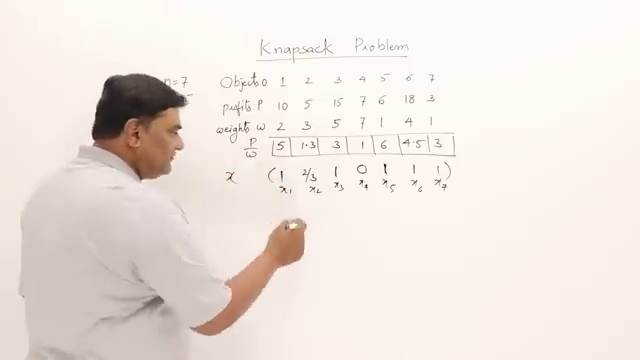 Knapsack Problem
n=7
Objects: O 1 2 3 4 5 6 7
profits: P 10 5 15 7 6 18 3
weights w 2 3 5 7 1 4 1
P/w 5 1.3 3 1 6 4.5 3
x (1 2/3 1 0 1 1 1)
x₁ x₂ x₃ x₄ x₅ x₆ x₇